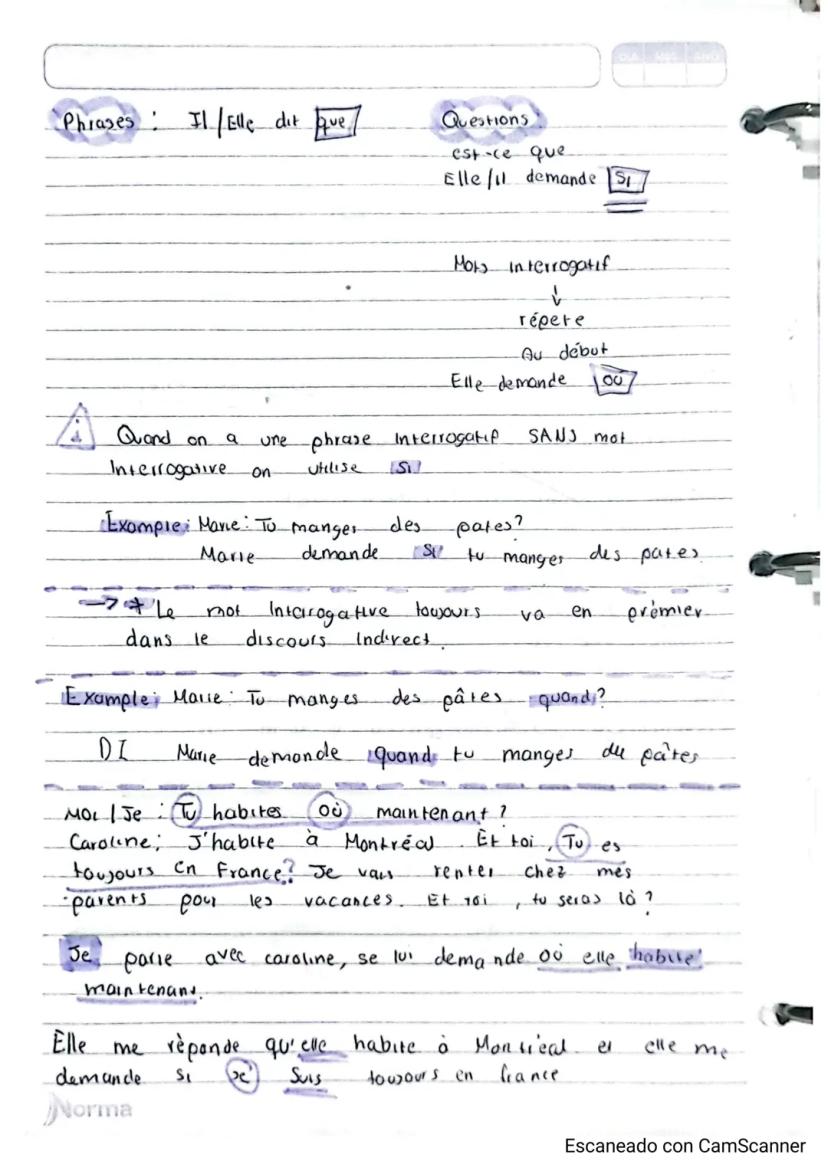 DIA MES AÑO
Phrases : Il/Elle dit que
Questions
est-ce que
Elle/il demande Si
Mots interrogatif
↓
répete
Au début
Elle demande où
Quand on a une phrase interrogatif SANS mot
Interrogative on utilise Si
Example: Marie: Tu manges des pates?
Marie demande Si tu manges des pates
→ * Le mot Interrogative toujours va en prémier
dans le discours Indirect.
Example: Marie: Tu manges des pâtes quand?
DI Marie demande quand tu manges des pâtes
Moi / Je : Tu habites où maintenant ?
Caroline: J'habite à Montréal. Èt toi, Tu es
toujours en France? Je vais renter chez mes
parents pour les vacances. Et toi, tu seras là ?
Je parle avec caroline, se lui demande où elle habite
maintenant.
Èlle me rèponde qu'elle habite à Montréal et elle me
demande si je suis toujours en france
Norma
Escaneado con CamScanner